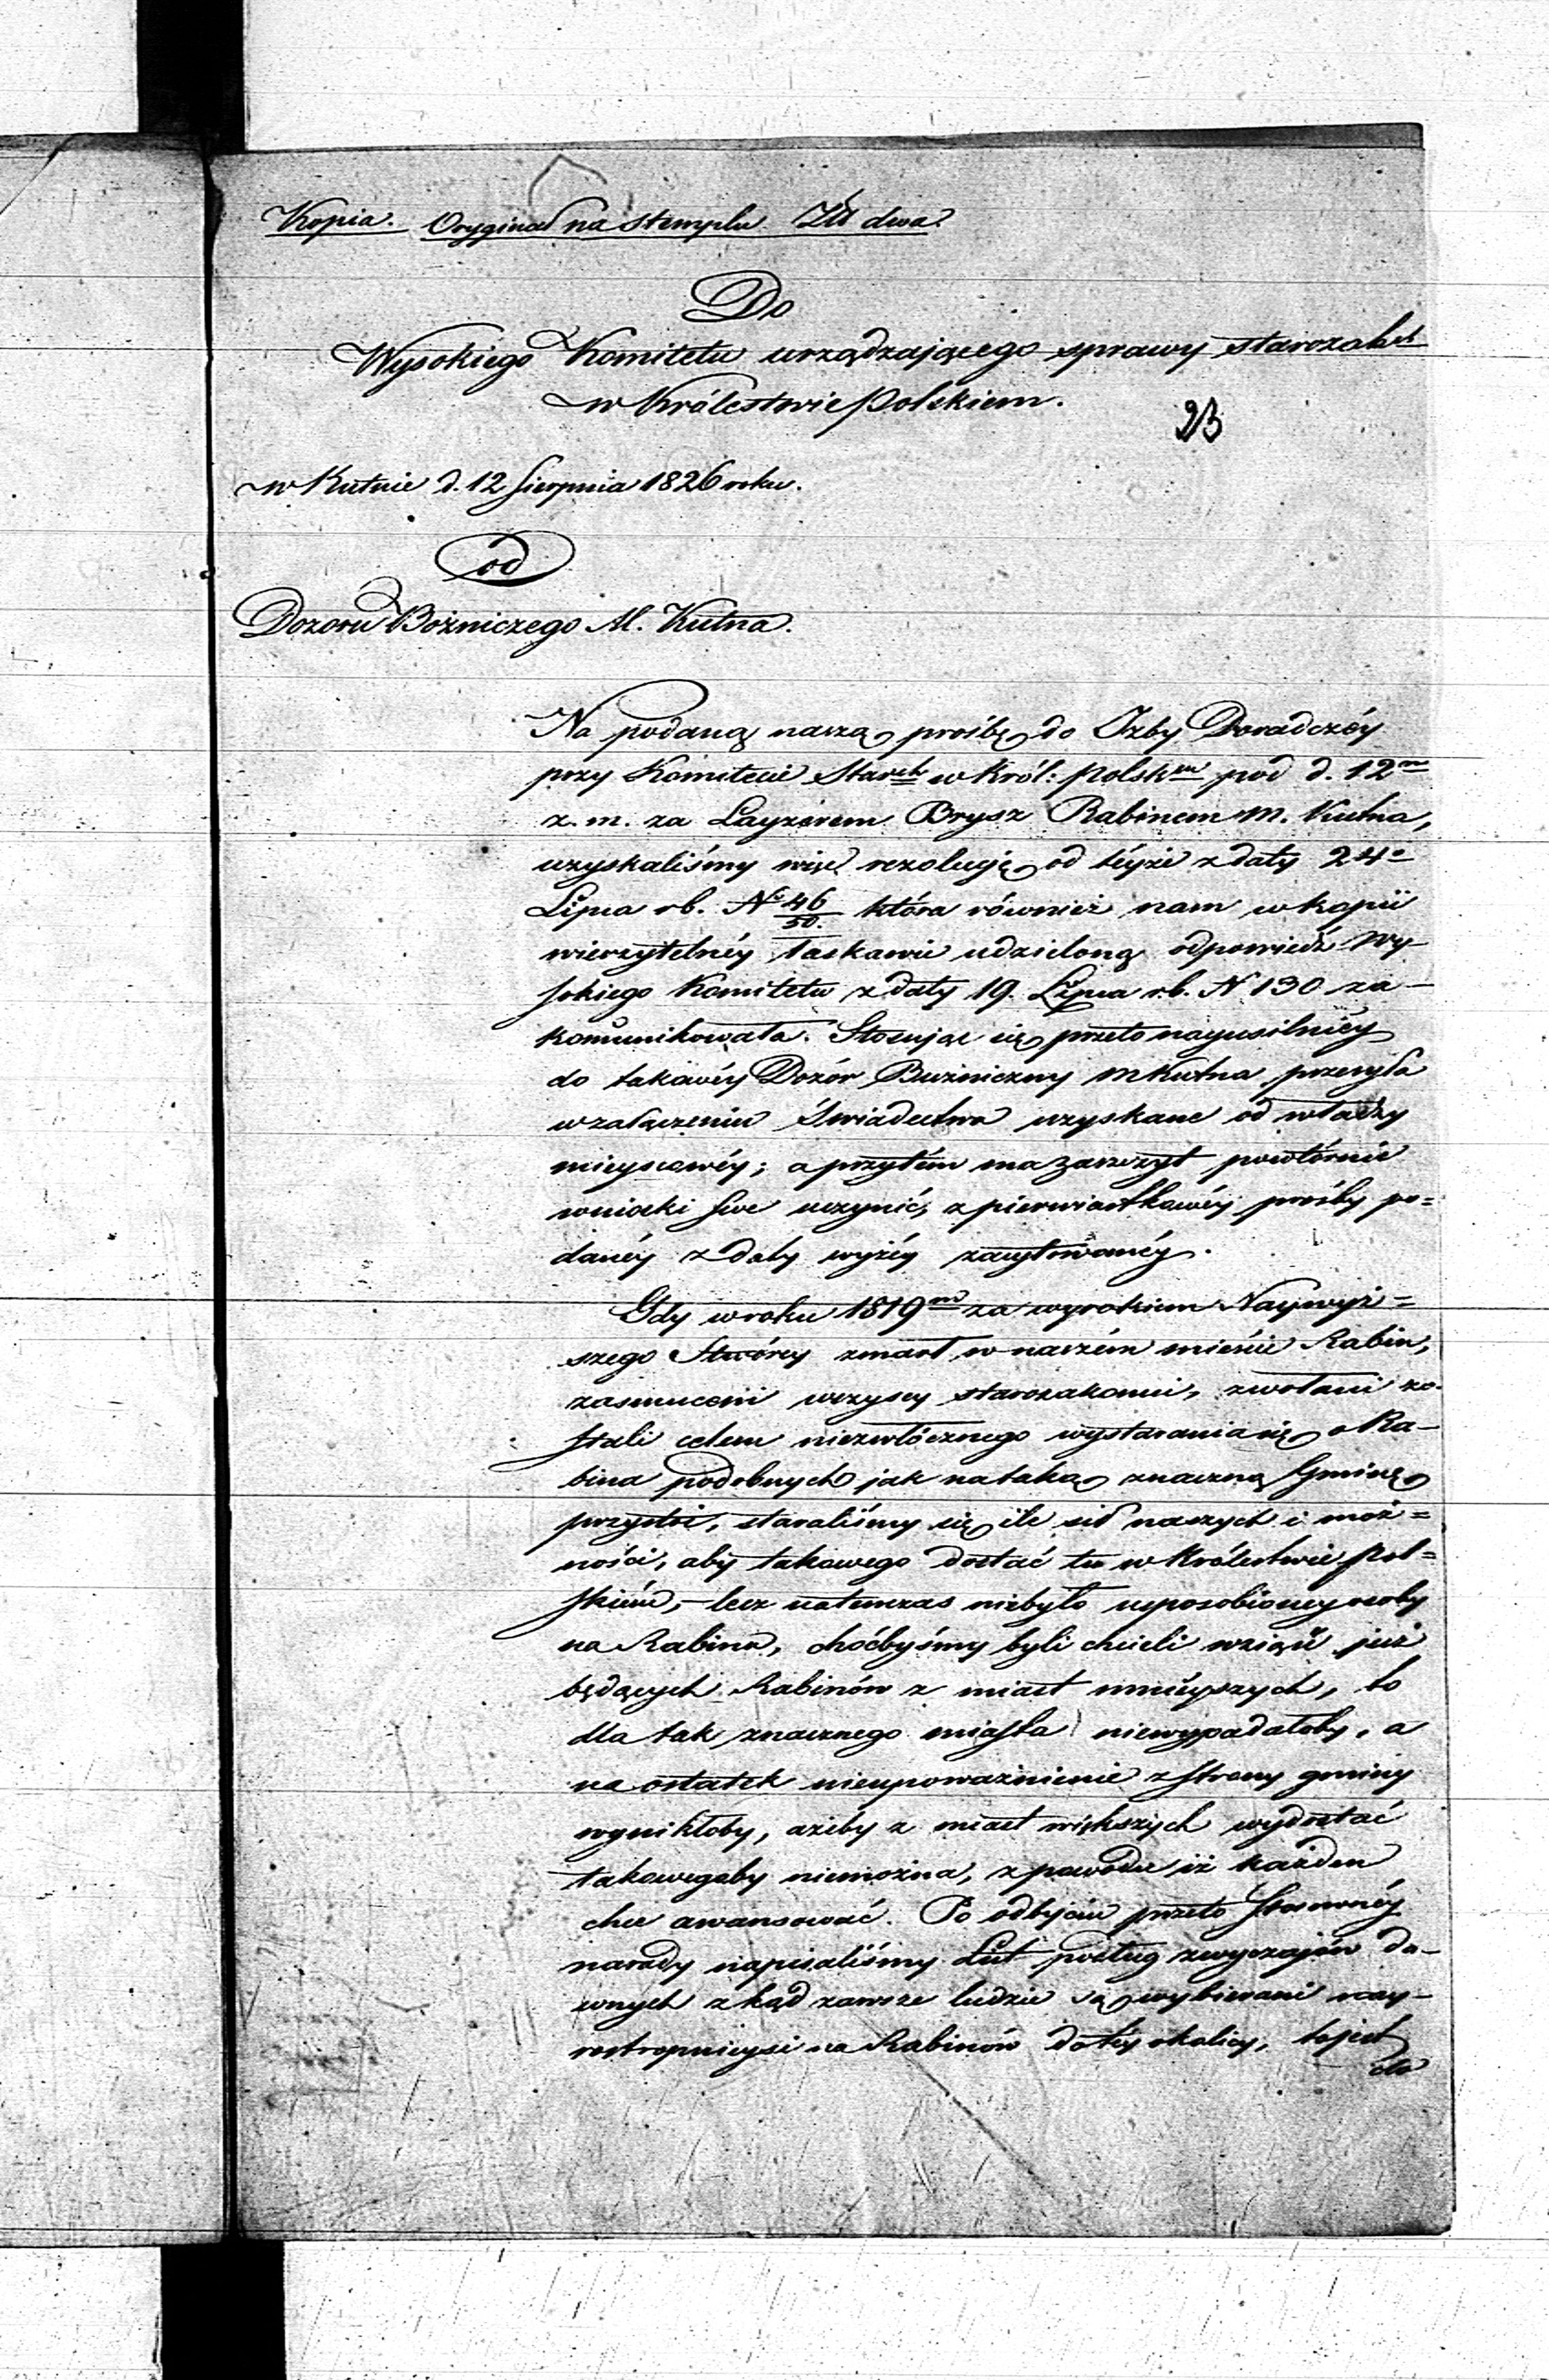 Kopia. Oryginał na stemplu Złł dwa.
Do
Wysokiego Komitetu urządzaiącego sprawy starozakch
w Królestwie Polskiem.
23
w Kutnie d. 12 Sierpnia 1826 roku.
od
Dozoru Bożniczego M. Kutna.
Na podaną naszą prośbę do Izby Doradczéy
przy Komitecie Starch w Król: Polskm pod d. 12m
z. m. za Layzerem Brysz Rabinem M. Kutna,
uzyskaliśmy więc rezolucję od téyże z daty 24o
Lipca rb. No 46/50. która również nam w kopii
wierzytelnéy łaskawie udzieloną odpowiedź Wy-
sokiego Komitetu z daty 19. Lipca r.b. N 130 za-
komunikowała. Stosując się przeto nayusilniéy
do takowéy Dozór Bużniczny M Kutna przesyła
w załączeniu Świadectwa uzyskane od władzy
mieyscowéy; a przytém ma zaszczyt powtórnie
wnioski swe uczynić, z pierwiastkowéy prośby po=
danéy z daty wyżéy zacytowanéy.
Gdy w roku 1819m za wyrokiem Naywyż=
szego Stwórcy zmarł w naszém mieście Rabin,
zasmuceni wszyscy starozakonni, zwołani zo-
stali celem niezwłócznego wystarania się o Ra-
bina podobnych jak na taką znaczną Gminę
przystoi, staraliśmy się ile sił naszych i moż=
ności, aby takowego dostać tu w Królestwie Pol=
skiém, – lecz natenczas niebyło usposobioney osoby
na Rabina, choćbyśmy byli chcieli wziąść już
będących Rabinów z miast mnieyszych, to
dla tak znacznego miasta niewypadałoby, a
na ostatek nieupoważnienie z strony gminy
wynikłoby, ażeby z miast większych wydostać
takowegoby niemożna, z powodu iż każden
chce awansować. Po odbyciu przeto stosownéy
narady napisaliśmy List podług zwyczajów da-
wnych z kąd zawsze ludzie są wybierani nay-
roztropnieysi na Rabinów do téy okolicy, to jest
do